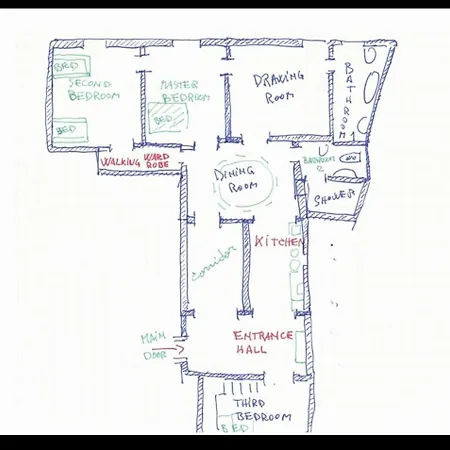 BED
SECOND
BEDROOM
BED
MASTER
BEDROOM
BED
DRAWING
ROOM
BATHROOM 1
WALKING WARD
ROBE
DINING
ROOM
BATHROOM
2
SHOWER
KITCHEN
Corridor
MAIN
DOOR
ENTRANCE
HALL
THIRD
BEDROOM
BED